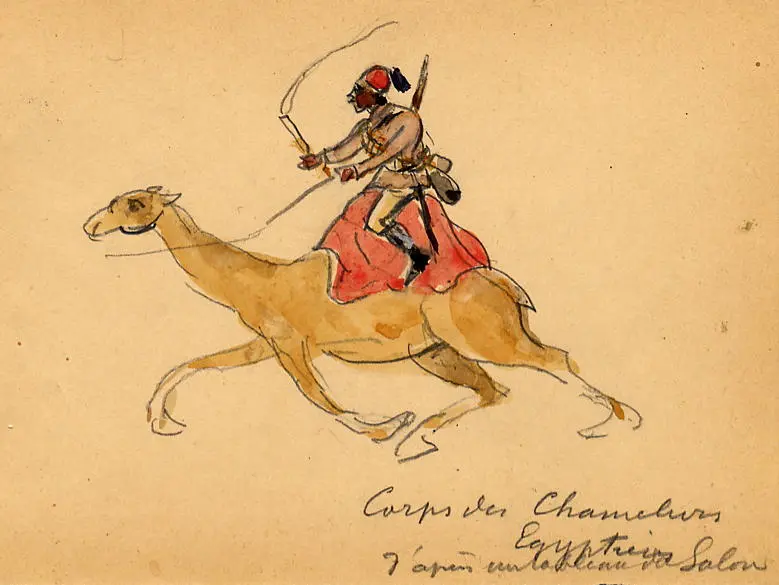 Corps des Chameliers
Egyptiens
d'après un tableau du Salon